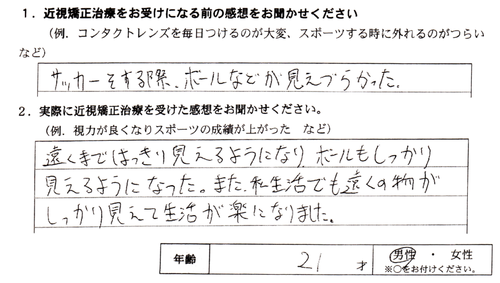 1．近視矯正治療をお受けになる前の感想をお聞かせください
（例．コンタクトレンズを毎日つけるのが大変、スポーツする時に外れるのがつらい
など）
サッカーをする際、ボールなどが見えづらかった。
2．実際に近視矯正治療を受けた感想をお聞かせください。
（例．視力が良くなりスポーツの成績が上がった　など）
遠くまではっきり見えるようになり、ボールもしっかり
見えるようになった。また、私生活でも遠くの物が
しっかり見えて生活が楽になりました。
年齢　21　才　男性　・　女性
※○をお付けください。